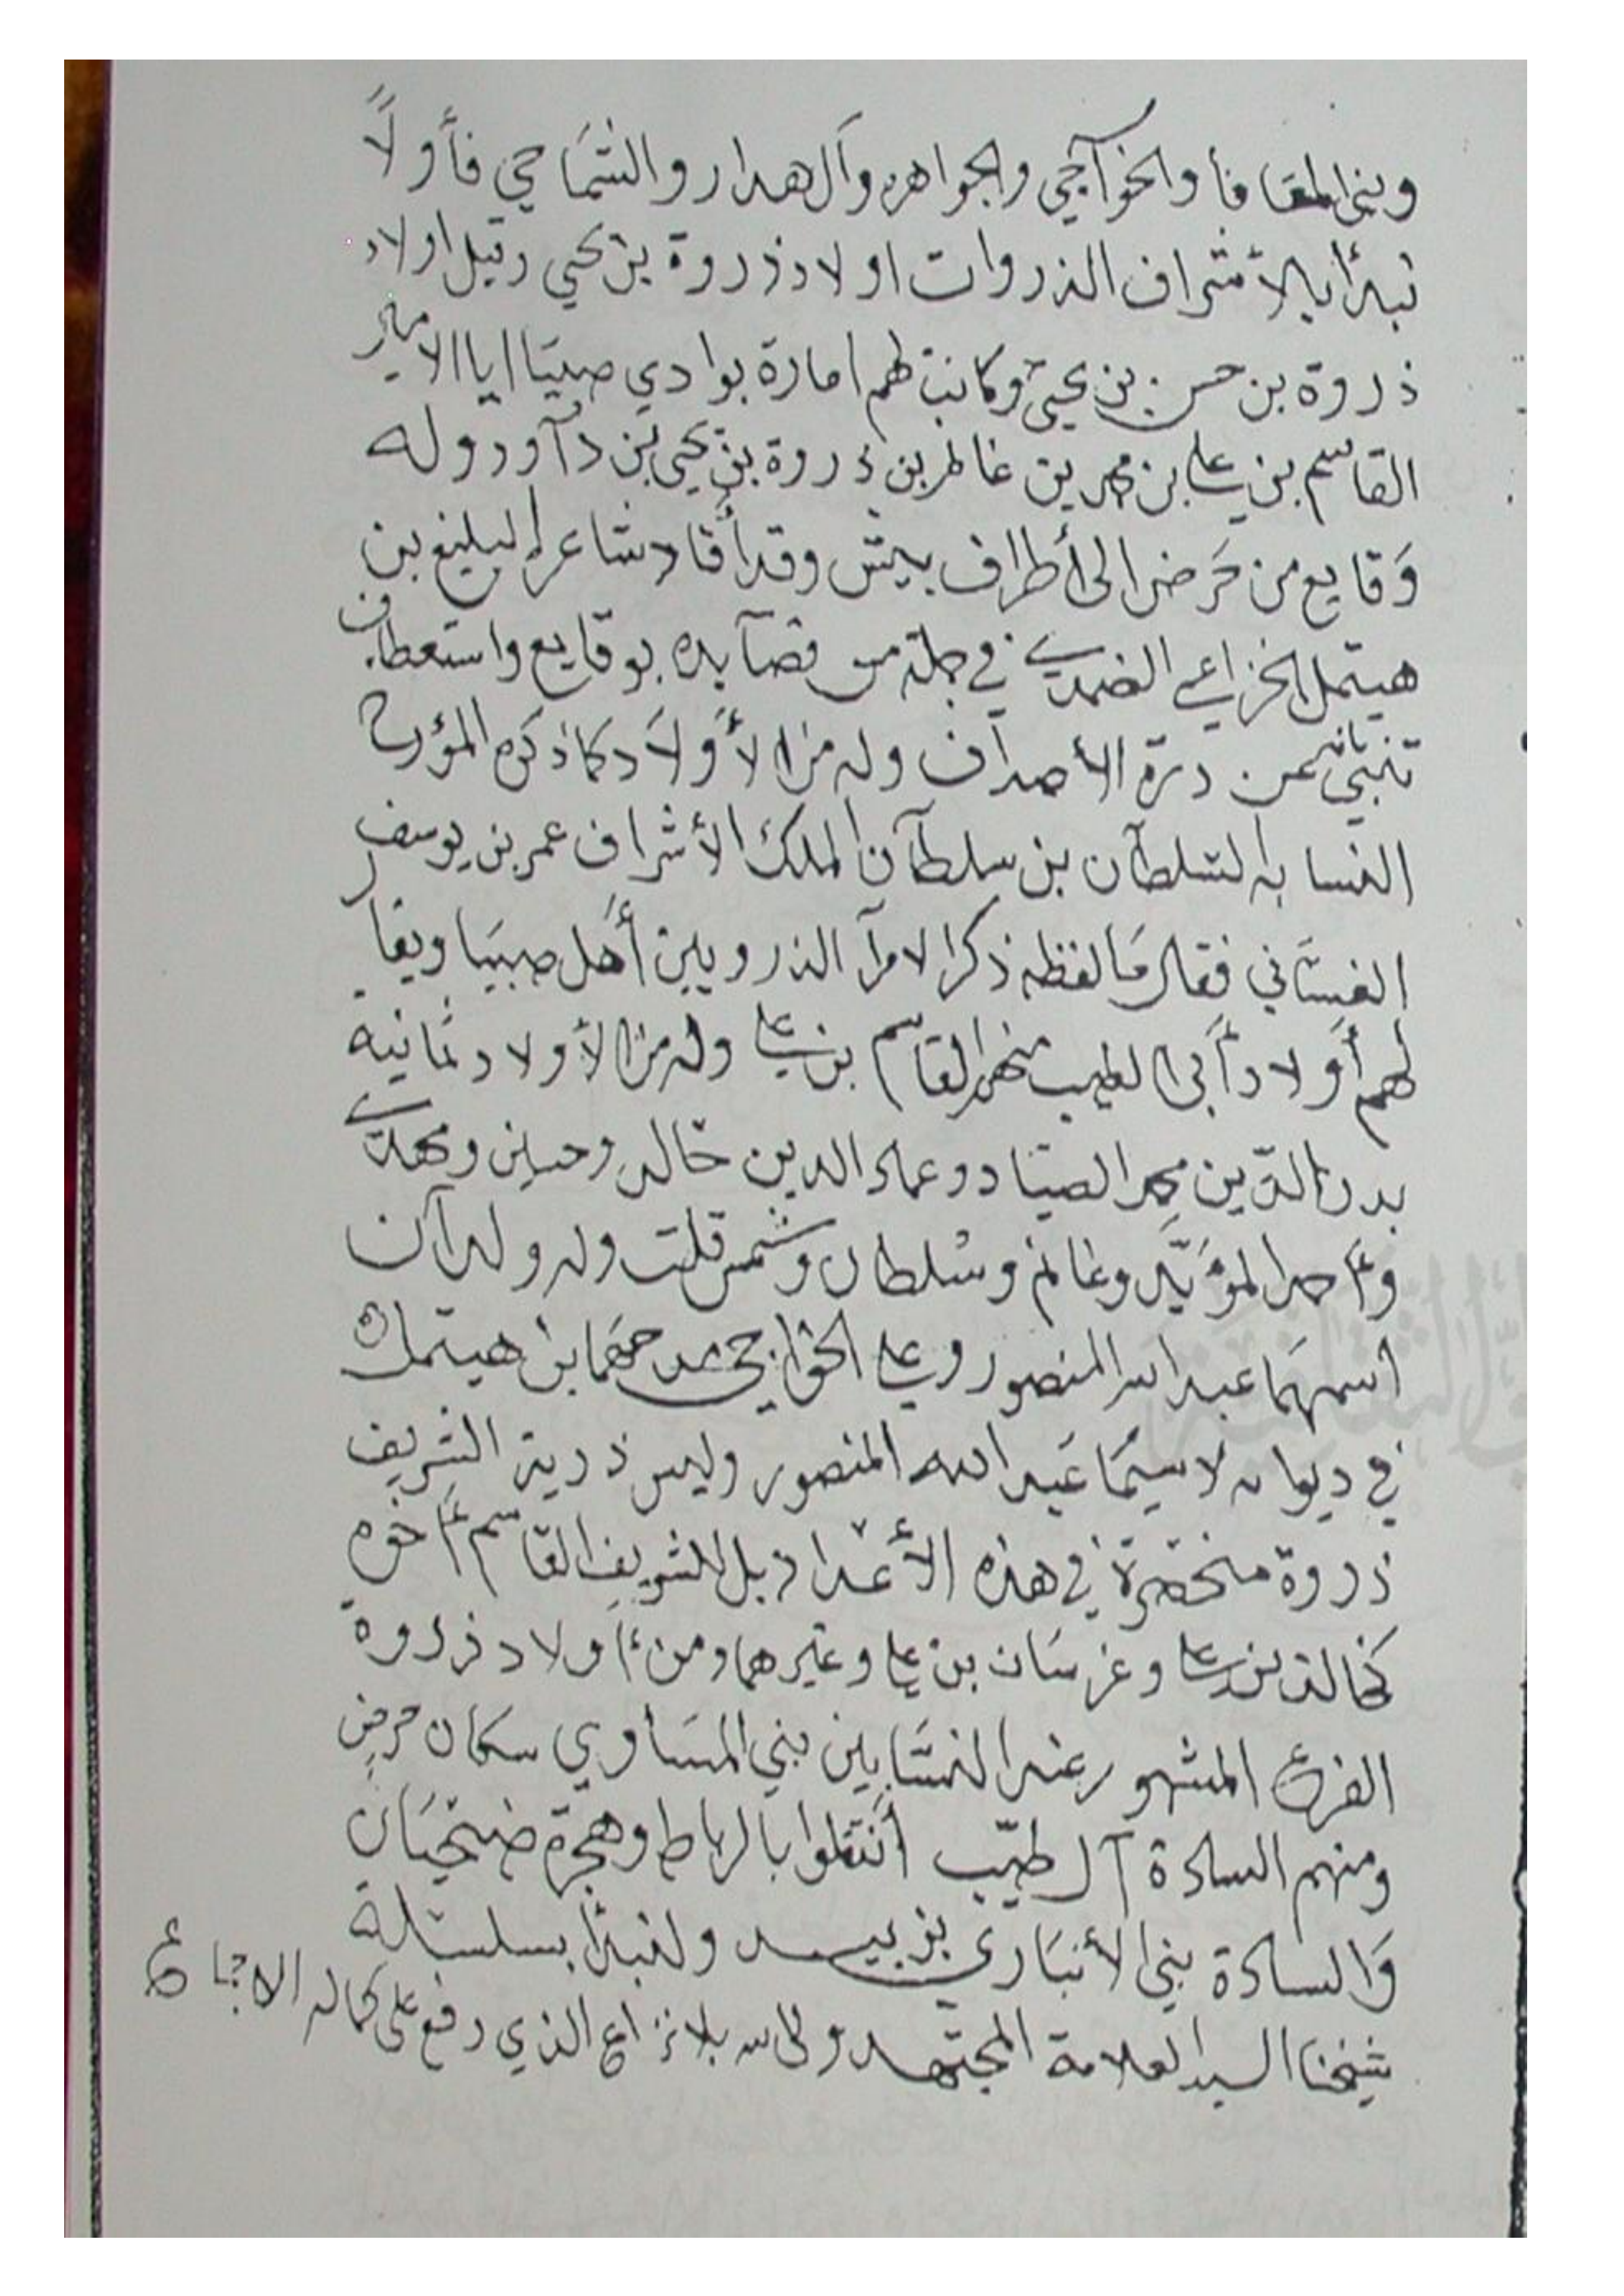 وبني المعافا والخواجي والجواهره وآل هدار والشماخي فأولاً
نبدأ بالأشراف الذروات اولاد ذروة بن يحيى وقيل اولاد
ذروة بن حسن بن يحيى وكانت لهم امارة بوادي صبيا ايا الامير
القاسم بن علي بن محمد بن غانم بن ذروة بن يحيى بن داود وله
وقايع من حرض الى أطراف بيش وقد أفاد شاعره البليغ بن
هيتمل الخزاعي الضمدي في جملة من قصايده بوقايع واستعطاف
تنبي عن درة الأصداف وله من الأولاد كما ذكره المؤرخ
النسابه السلطان بن سلطان الملك الأشراف عمر بن يوسف
الغساني فقال ما لفظه ذكر الامرآ الذرويين أهل صبيا ويقال
لهم أولاد أبي الطيب منهم القاسم بن علي وله من الأولاد ثمانية
بدر الدين محمد الصياد وعماد الدين خالد وحسين ومهدي
وأحمد المؤيد وغانم وسلطان وشمس قلت وله ولدآن
اسمهما عبد الله المنصور وعلي الخواجي مدحهما بن هيتمل
في ديوانه لا سيما عبد الله المنصور وليس ذرية الشريف
ذروة منحصرة في هذه الأعداد بل للشريف القاسم أخوه
كخالد بن علي وغرسان بن علي وغيرهما ومن أولاد ذروة
الفرع المشهور عند النسابين بني المساوي سكان حرض
ومنهم السادة آل طيب انتقلوا بالرباط وهجرة ضمحان
والسادة بني الأنباري بزبيد ولنبدأ بسلسلة
شيخنا السيد العلامة المجتهد ولي الله بلا نزاع الذي وقع على كماله الاجماع